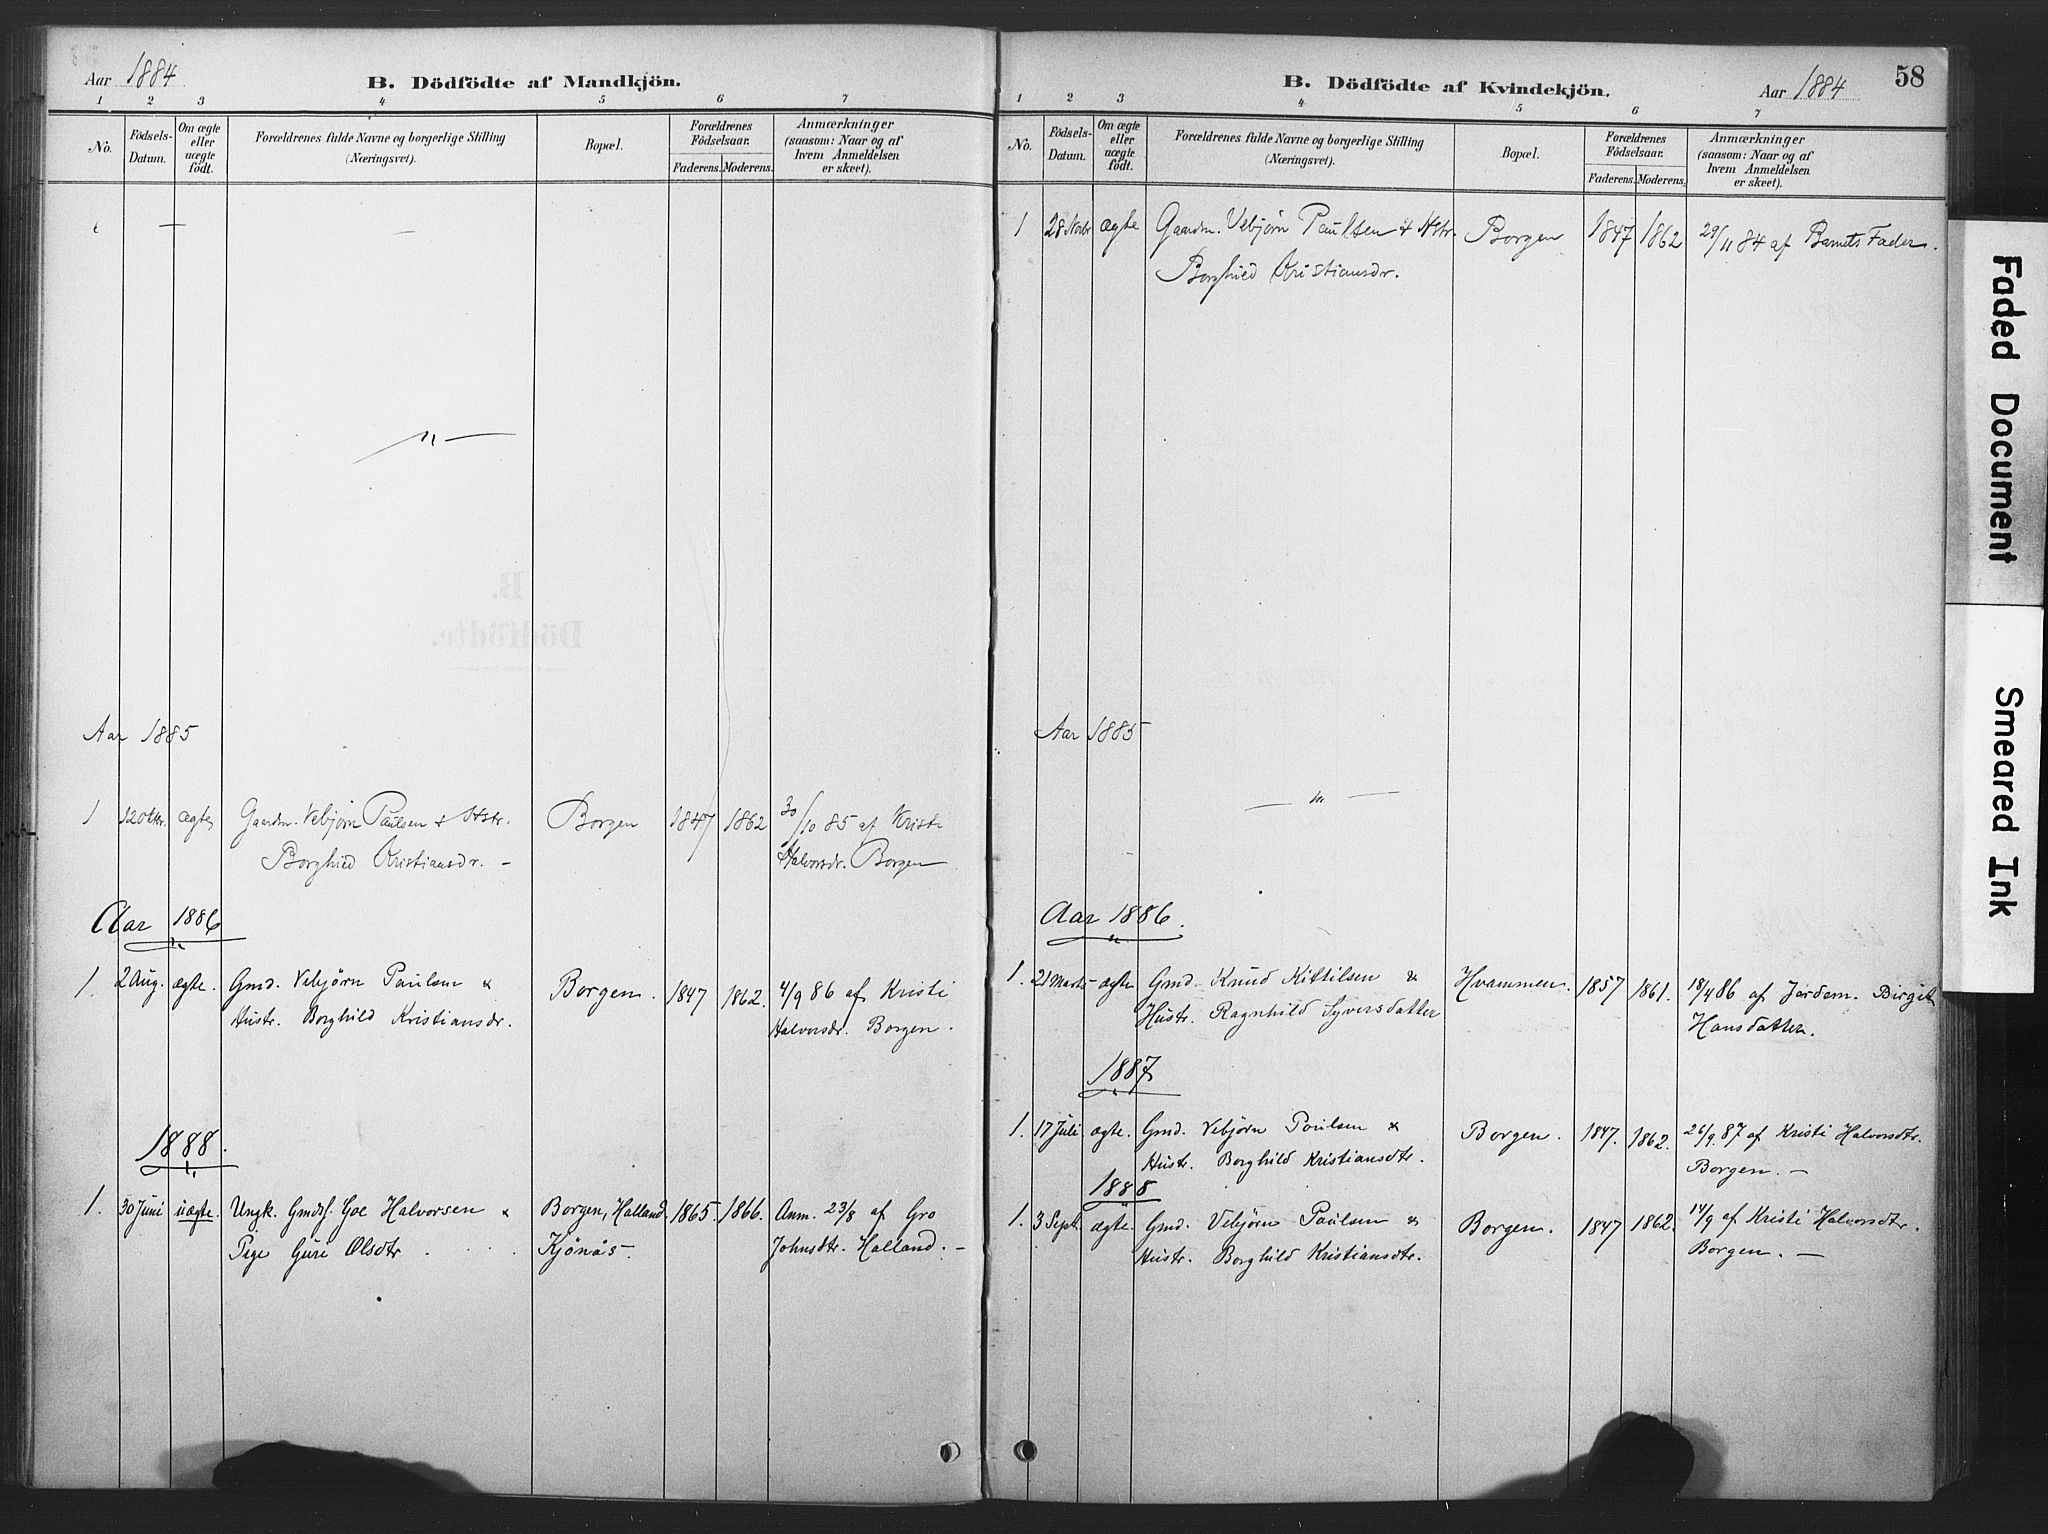 Aar 1884
B. Dödfödte af Mandkjön.
1 2 3 4 5 6 7
No.
Födsels-
Datum.
Om ægte
eller
uægte
födt.
Forældrenes fulde Navne og borgerlige Stilling
(Næringsvei).
Bopæl.
Forældrenes
Födselsaar.
Faderens. Moderens.
Anmærkninger
(saasom: Naar og af
hvem Anmeldelsen
er skeet).
— —
— " —
Aar 1885
1 12 Oktr. ægte Gaardm. Vebjørn Paulsen & Hstr. Borgen 1847 1862 30/10 85 af Kristi
Borghild Kristiansdr. — Halvorsdr. Borgen
Aar 1886
1. 2 Aug. ægte. Gmd. Vebjörn Paulsen & Borgen. 1847 1862. 4/9 86 af Kristi
Hustr. Borghild Kristiansdr. Halvorsdr. Borgen.
1888.
1. 30 Juni uægte. Ungk. Gmds. Goe Halvorsen & Borgen, Halland 1865 1866. Anm. 23/8 af Gro
Pige Guri Olsdtr Kjönås. Johnsdtr. Halland. —
B. Dödfödte af Kvindekjön.
Aar 1884
58
1 2 3 4 5 6 7
No.
Födsels-
Datum.
Om ægte
eller
uægte
födt.
Forældrenes fulde Navne og borgerlige Stilling
(Næringsvei).
Bopæl.
Forældrenes
Födselsaar.
Faderens. Moderens.
Anmærkninger
(saasom: Naar og af
hvem Anmeldelsen
er skeet).
1 28 Novbr ægte Gaardm. Vebjørn Paulsen & Hstr. Borgen 1847 1862 29/11 84 af Barnets Fader.
Borghild Kristiansdr.
Aar 1885
— " —
Aar 1886.
1. 21 Marts ægte Gmd. Knud Kittilsen & Hvammen. 1857 1861. 18/4 86 af Jordem. Birgit
Hustr. Ragnhild Syversdatter Hansdatter.
1887
1. 17 Juli ægte. Gmd. Vebjörn Poulsen & Borgen. 1847. 1862. 26/9. 87 af Kristi Halvorsdtr.
Hustr. Borghild Kristiansdtr. Borgen. —
1888
1. 3 Sept. ægte. Gmd. Vebjörn Paulsen & Borgen. 1847 1862. 14/9 af Kristi Halvorsdtr.
Hustr. Borghild Kristiansdtr. Borgen. —
Faded Document
Smeared Ink